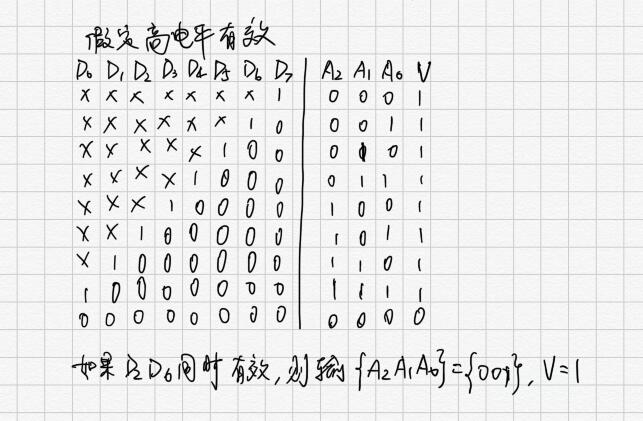 假定高电平有效
D₀ D₁ D₂ D₃ D₄ D₅ D₆ D₇ | A₂ A₁ A₀ V
× × × × × × × 1 | 0 0 0 1
× × × × × × 1 0 | 0 0 1 1
× × × × × 1 0 0 | 0 1 0 1
× × × × 1 0 0 0 | 0 1 1 1
× × × 1 0 0 0 0 | 1 0 0 1
× × 1 0 0 0 0 0 | 1 0 1 1
× 1 0 0 0 0 0 0 | 1 1 0 1
1 0 0 0 0 0 0 0 | 1 1 1 1
0 0 0 0 0 0 0 0 | 0 0 0 0
如果D₂D₆同时有效,则输出{A₂A₁A₀}={001},V=1